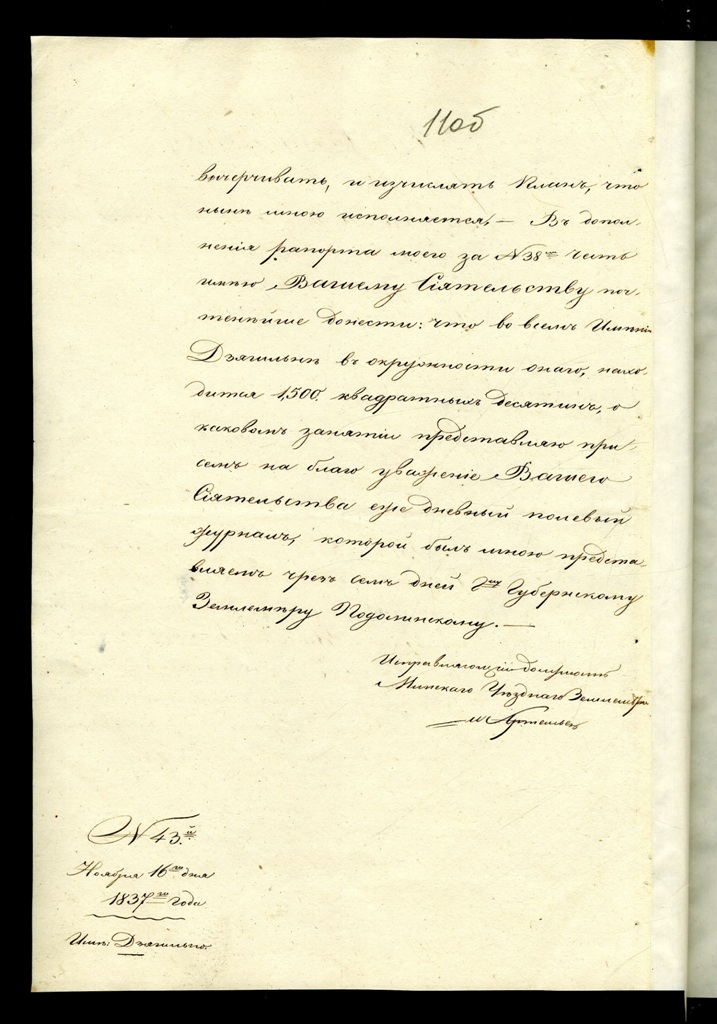 11об
вычерчивать, и изчислять планъ, что
нынѣ мною исполняется, — Въ допол-
неніи рапорта моего за N 38мъ честь
имѣю Вашему Сіятельству поч-
теннѣйше донести: что во всемъ Имѣніи
Дзягильнѣ въ окружности онаго, нахо-
дится 1,500. квадратныхъ десятинъ, о
каковомъ занятіи представляю при
семъ на благо уваженіе Вашего
Сіятельства еже дневный полевый
журналъ, которой былъ мною предста-
вляемъ чрезъ семь дней Гну Губернскому
Землемѣру Подолинскому. —
Исправляющій должность
Минскаго Уѣзднаго Землемѣра
N 43.й
Ноября 16го дня
1837го года
Имѣ: Дзягильно.